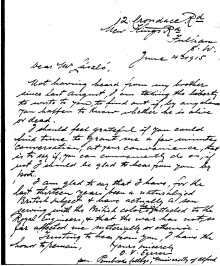 12 Brondace Rd
New Kings Rd
Fulham
S. W.
June 4th 1915
Dear Mr László,
Not having heard from my brother
since last August I am taking the liberty
to write to you to find out if by any chance
you happen to know whether he is alive
or dead.
I should feel grateful if you could
find time to grant me a few minutes
conversation, at your convenience, that
is to say if you can conveniently do so, if
not I should be glad to hear from you by
post.
I am glad to say that I have, for the
last thirteen years been a naturalized
British subject & have actually a son
serving with the British colours attached to the
Royal Engineers, & that the war has not so
far affected me materially or otherwise.
Trusting to hear from you, I have the
honour to remain,
Yours sincerely